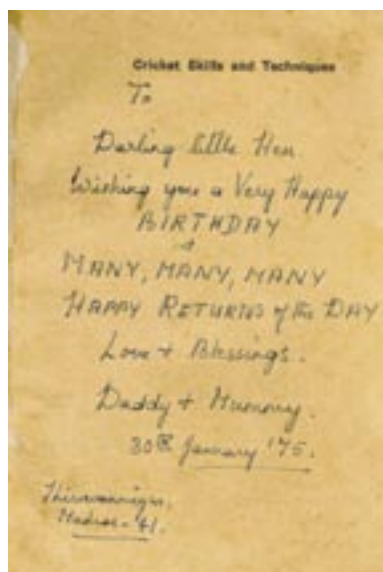 Cricket Skills and Techniques
To
Darling little
Wishing you a Very Happy
BIRTHDAY
&
MANY, MANY, MANY
HAPPY RETURNS of the DAY
Love + Blessings.
Daddy + Mummy.
30th January '75.
Madras-41.